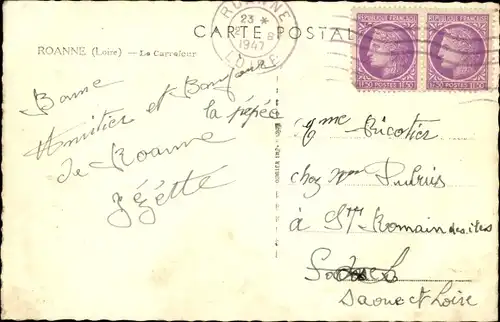 CARTE POSTALE
ROANNE (Loire) — Le Carrefour
ROANNE
23 *
8
1947
LOIRE
REPUBLIQUE FRANÇAISE
1F50 POSTES 1F50
REPUBLIQUE FRANÇAISE
1F50 POSTES 1F50
Bonne
Amitier et Bonjour
la pépée
de Roanne
Zézette
Mme Ricotier
chez Mme Dubuis
à St Romain des iles
Saone et Loire